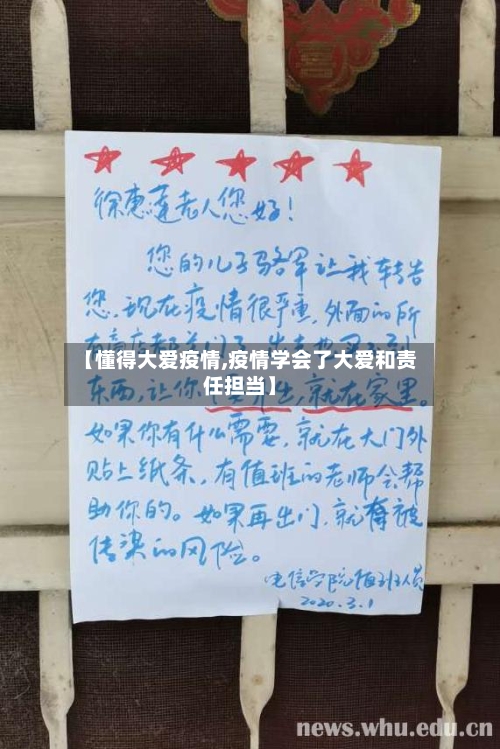 徐惠莲老人您好！
您的儿子骆军让我转告
您，现在疫情很严重，外面的所
【懂得大爱疫情,疫情学会了大爱和责
任担当】
东西，让你
就在家里。
如果你有什么需要，就在大门外
贴上纸条，有值班的老师会帮
助你的。如果再出门，就有被
传染的风险。
电信学院值班人员
2020.3.1
news.whu.edu.cn